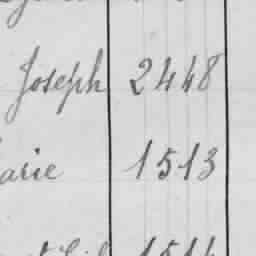 Joseph 2448
arie 1513